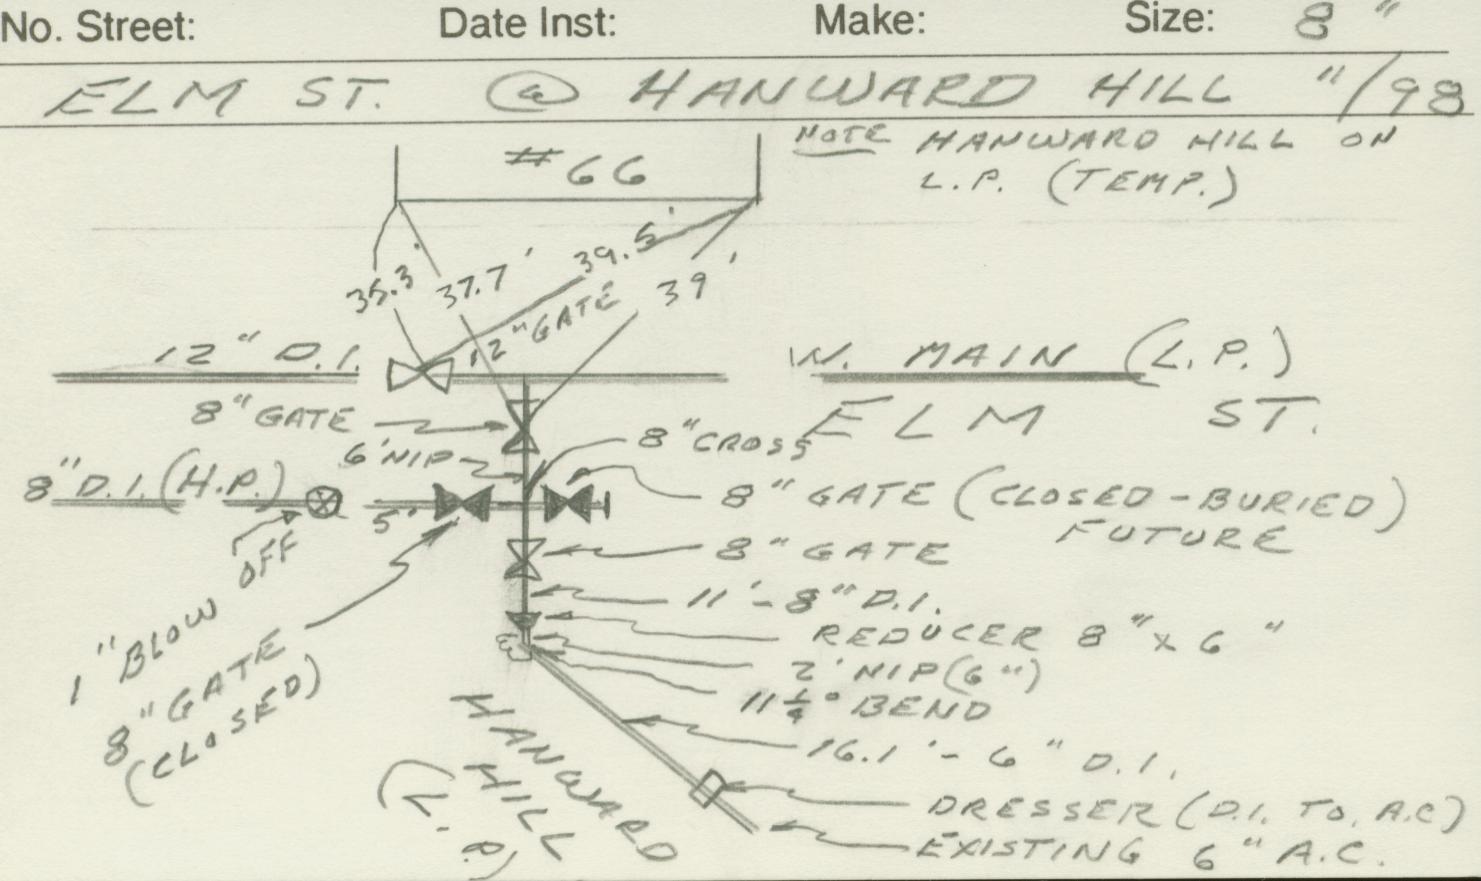 No. Street: Date Inst: Make: Size: 8"
ELM ST. @ HANWARD HILL "/98
NOTE HANWARD HILL ON
L.P. (TEMP.)
#66
35.3' 37.7' 39.5' 39'
12" GATE
12" D.I.
W. MAIN (L.P.)
ELM ST.
8" GATE
6' NIP
8" CROSS
8" D.I. (H.P.)
5'
8" GATE (CLOSED-BURIED)
FUTURE
8" GATE
1" BLOW OFF
8" GATE
(CLOSED)
11'-8" D.I.
REDUCER 8" x 6"
2' NIP (6")
11 1/4° BEND
16.1'-6" D.I.
DRESSER (D.I. TO A.C)
EXISTING 6" A.C.
HANWARD
HILL
(L.P.)